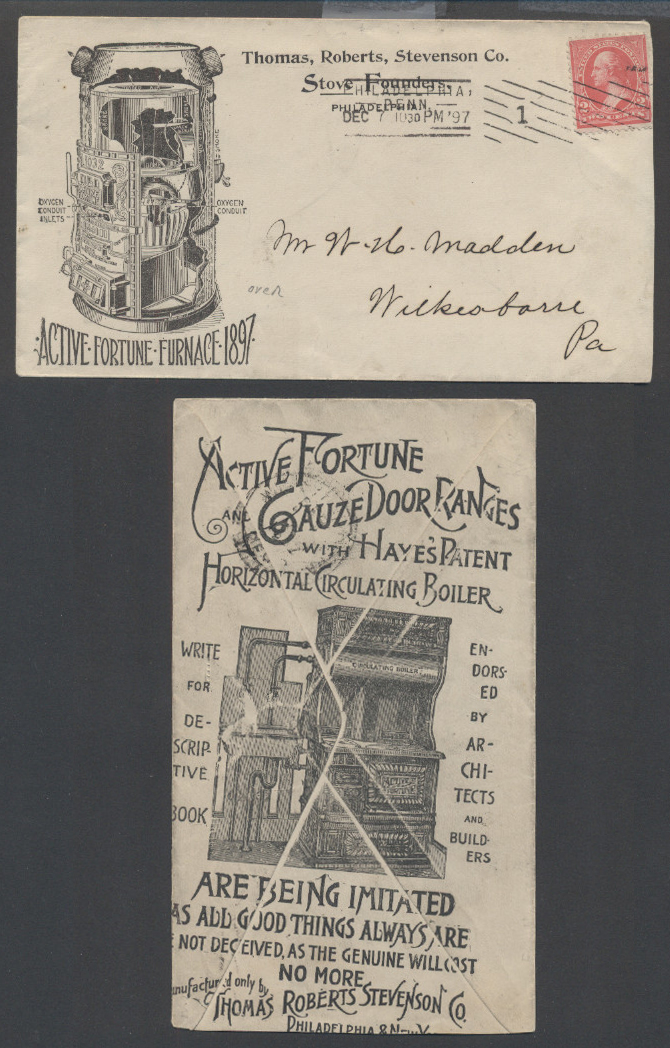 Thomas, Roberts, Stevenson Co.
Stove Founders,
PHILADELPHIA.
PHILADELPHIA,
PENN.
DEC 7 1030 PM '97
1
OXYGEN
CONDUIT
INLETS
OXYGEN
CONDUIT
SMOKE
Mr W. H. Madden
Wilkesbarre
Pa
over
·ACTIVE·FORTUNE·FURNACE·1897·
ACTIVE FORTUNE
AND GAUZE DOOR RANGES
WITH HAYE'S PATENT
HORIZONTAL CIRCULATING BOILER
CIRCULATING BOILER
WRITE
FOR
DE-
SCRIP-
TIVE
BOOK
EN-
DORS-
ED
BY
AR-
CHI-
TECTS
AND
BUILD-
ERS
ARE BEING IMITATED
AS ALL GOOD THINGS ALWAYS ARE
E NOT DECEIVED, AS THE GENUINE WILL COST
NO MORE
anufactured only by
THOMAS ROBERTS STEVENSON CO.
PHILADELPHIA & New Y